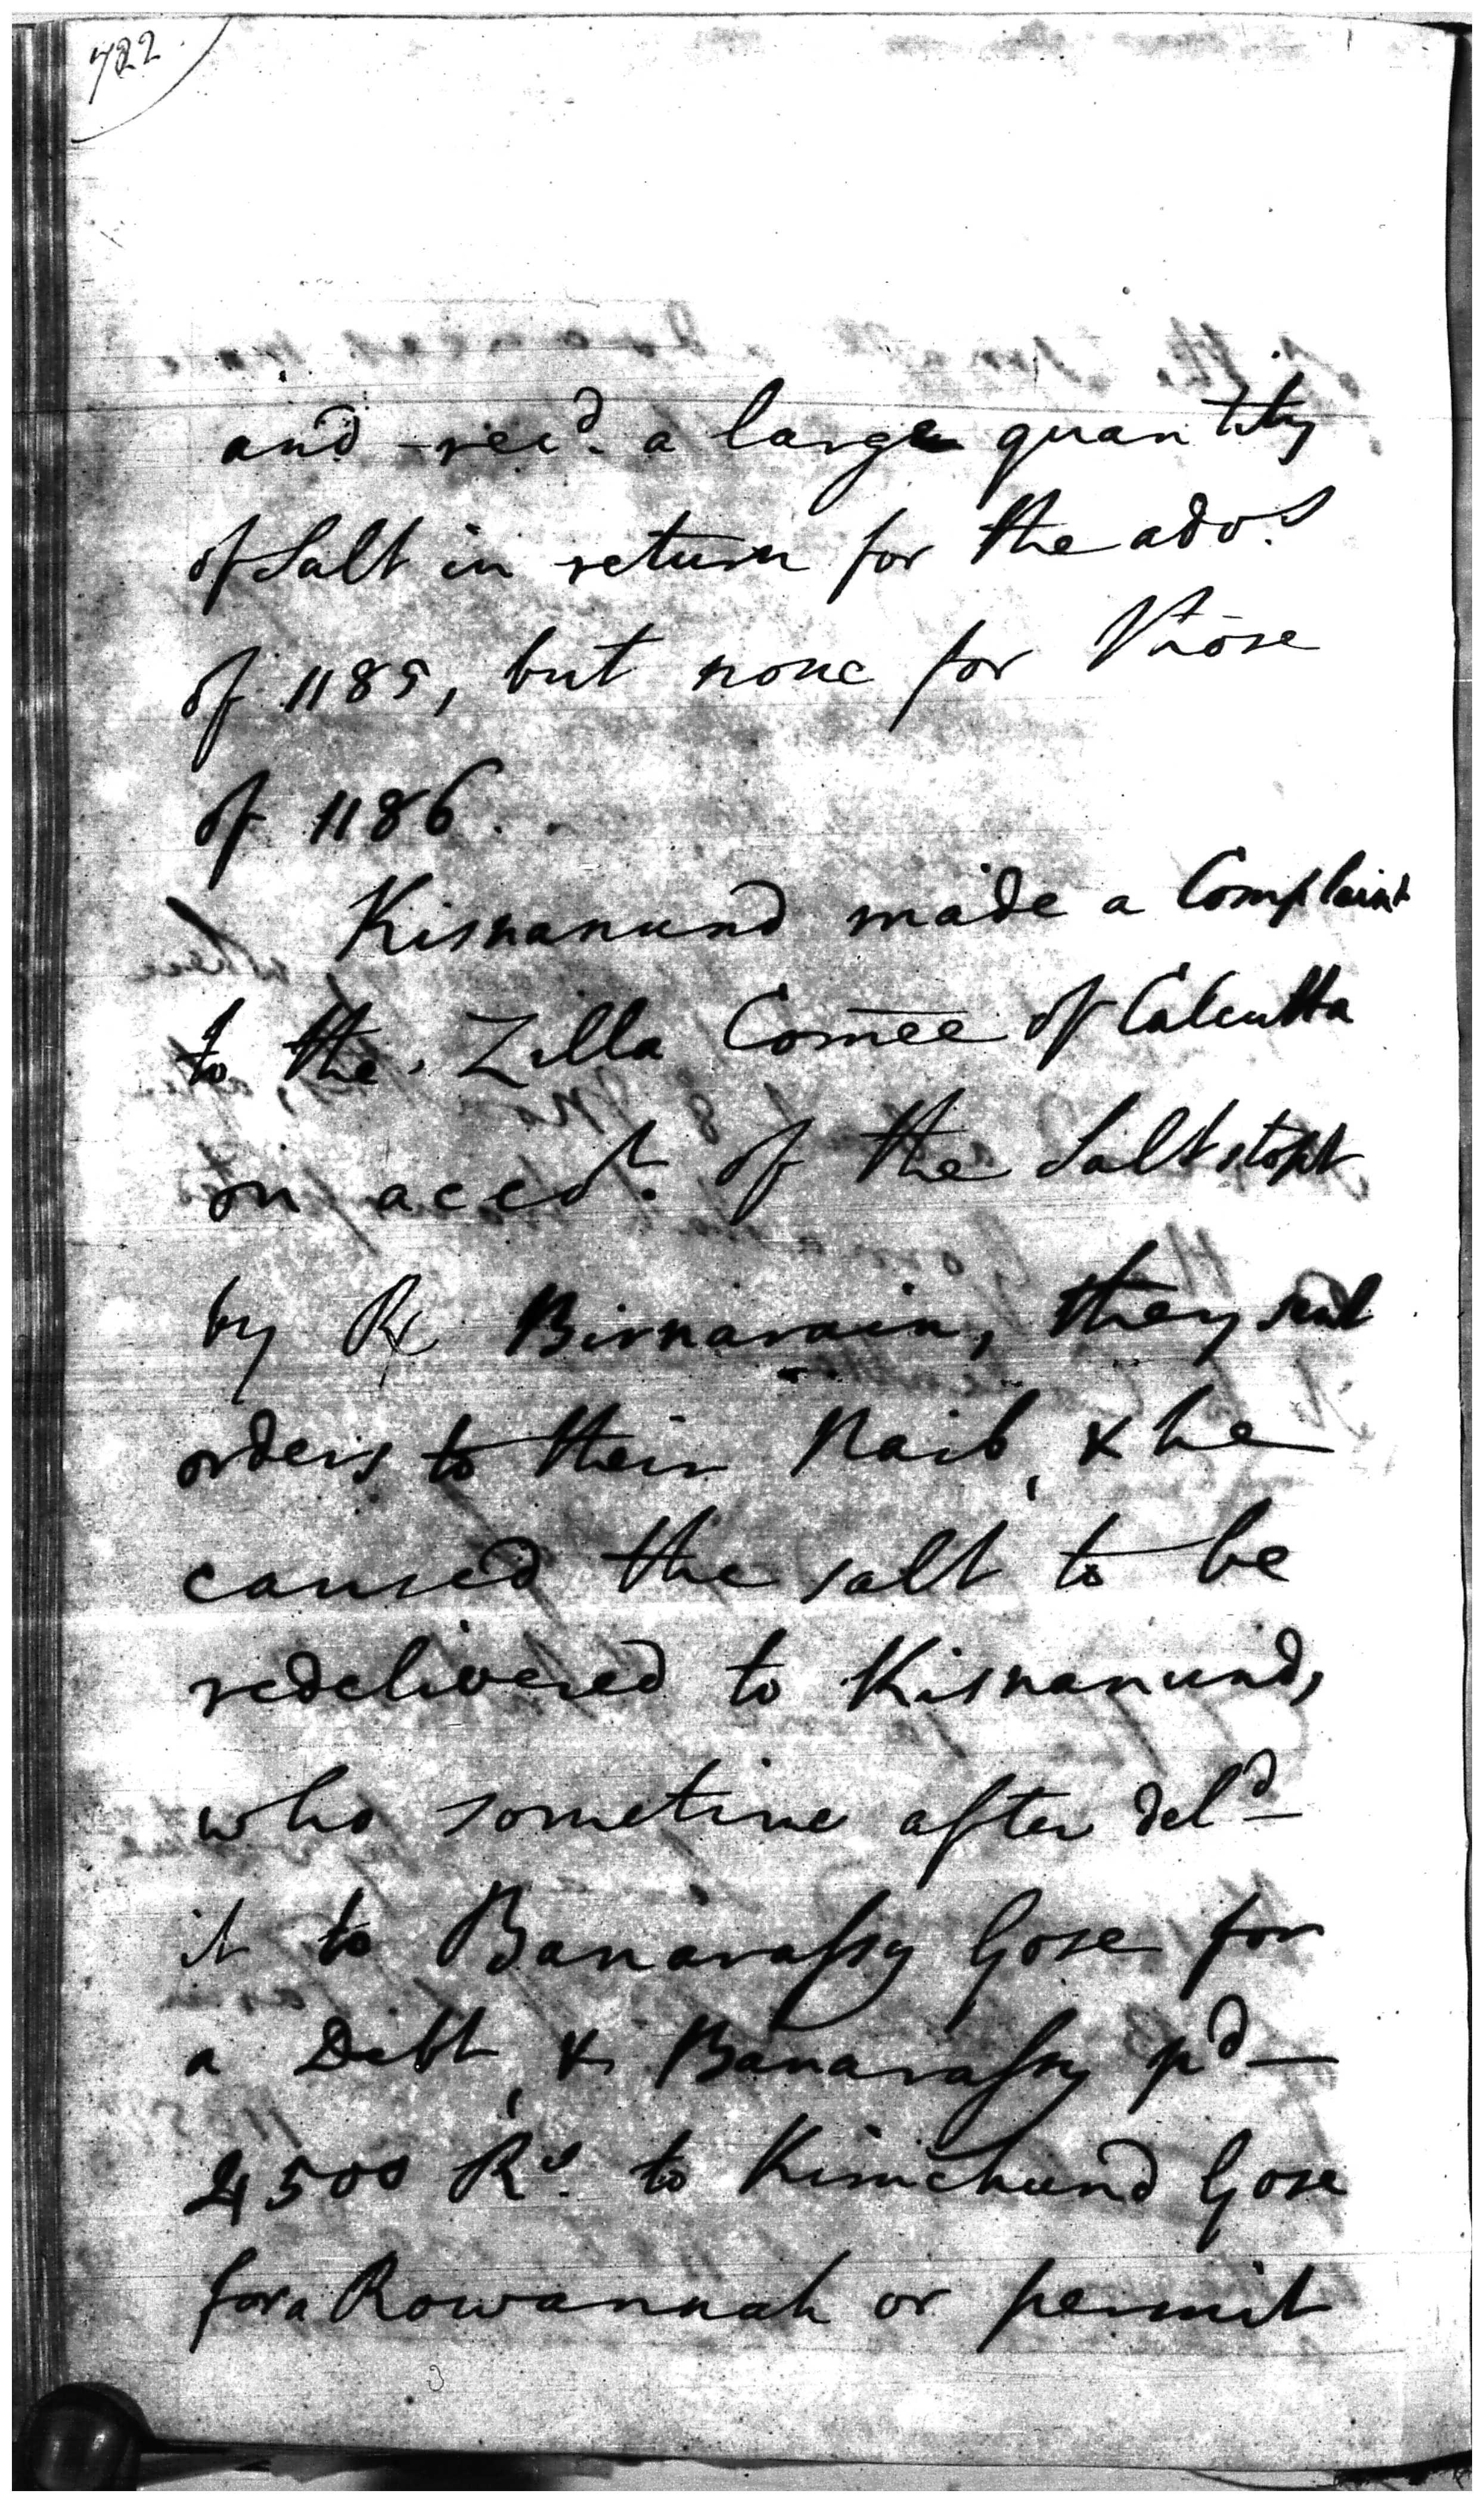 722
and rec.d a large quantity
of Salt in return for the adv.s
of 1185, but none for those
of 1186.
Kisnanund made a Complaint
to the Zilla Comēe of Calcutta
on accot. of the Salt stopt
by R Birnarain, they sent
orders to their Naib, & he
caused the salt to be
redelivered to Kisnanund,
who sometime after del.d
it to Banarassy Gose for
a Debt, & Banarassy p.d
4500 R.s to Kimchund Gose
for a Rowannah or permit